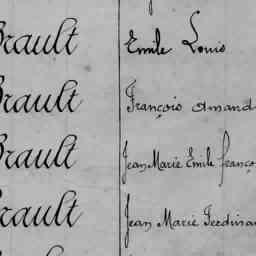 Brault Emile Louis
Brault François Amand
Brault Jean Marie Emile Franço
Brault Jean Marie Ferdina